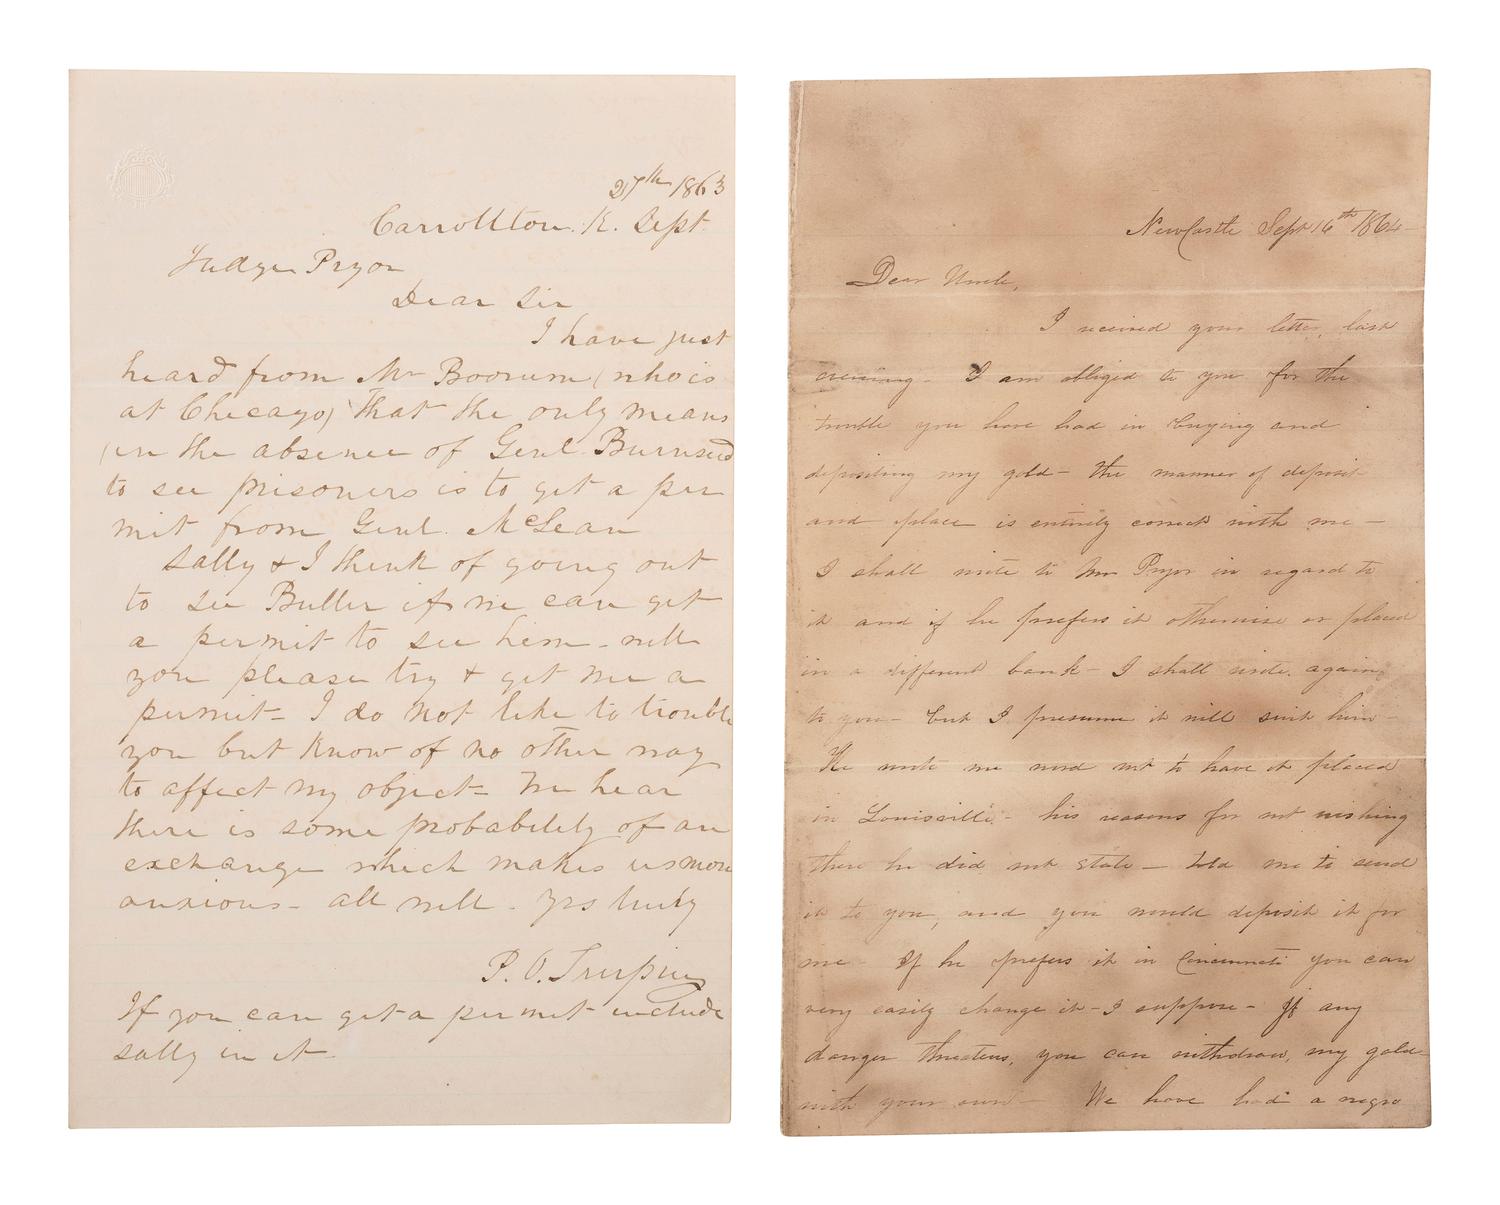 27th 1863
Carrollton. K. Sept.
Judge Pryor
Dear Sir
I have just
heard from Mr Boorum (who is
at Chicago) that the only means
(in the absence of Genl. Burnside)
to see prisoners is to get a per
mit from Genl. McLean
Sally & I think of going out
to see Butler if we can get
a permit to see him - will
you please try & get me a
permit - I do not like to trouble
you but know of no other way
to affect my object - We hear
there is some probability of an
exchange which makes us more
anxious - all well - Yrs truly
P. O. Turpin
If you can get a permit include
Sally in it -
Newcastle Sept 16th 1864
Dear Uncle,
I received your letter, last
evening - I am obliged to you for the
trouble you have had in buying and
depositing my gold - the manner of deposit
and place is entirely correct with me -
I shall write to Mr Pryor in regard to
it and if he prefers it otherwise or placed
in a different bank - I shall write again
to you - but I presume it will suit him -
He wrote me word not to have it placed
in Louisville - his reasons for not wishing
there he did not state - told me to send
it to you, and you would deposit it for
me - If he prefers it in Cincinnati you can
very easily change it - I suppose - If any
danger threatens, you can withdraw, my gold -
with your own - We have had a negro